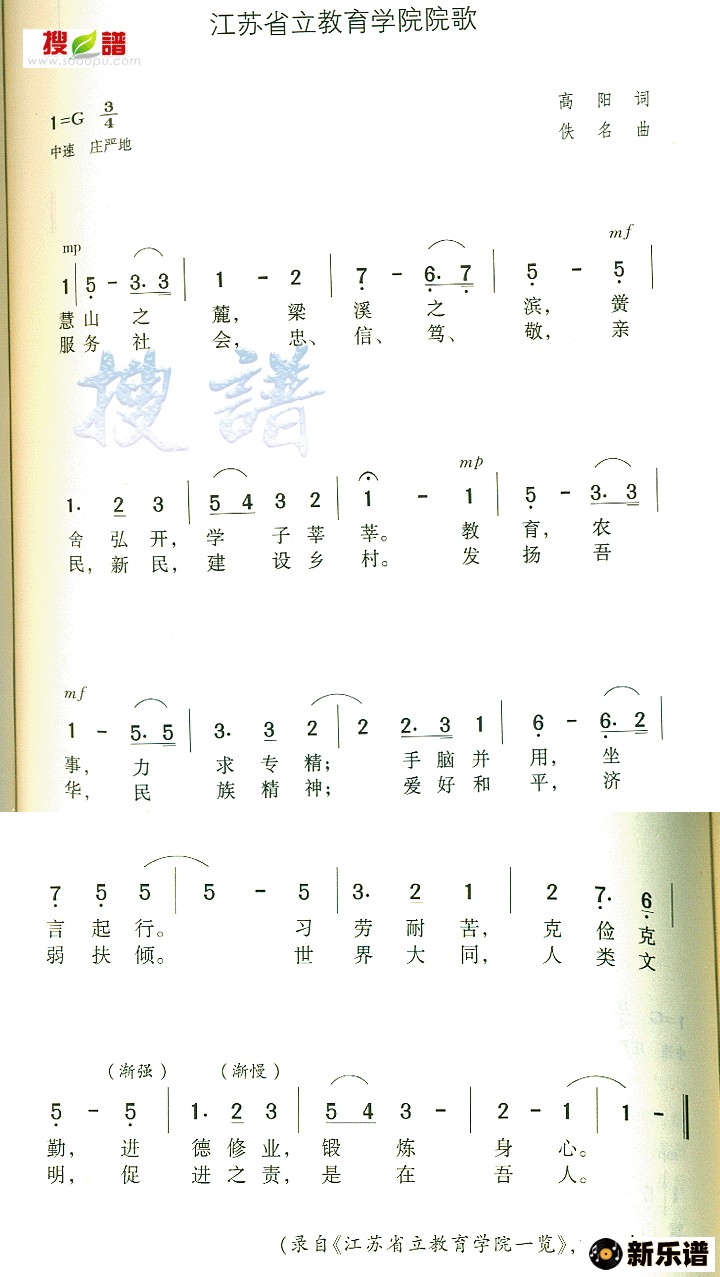 江苏省立教育学院院歌
搜譜
www.sooopu.com
1=G 3/4
高 阳 词
中速 庄严地
佚 名 曲
mp
mf
1 | 5 - 3. 3 | 1 - 2 | 7 - 6. 7 | 5 - 5 |
慧 山 之 麓, 梁 溪 之 滨, 黉
服 务 社 会, 忠、 信、 笃、 敬, 亲
搜譜
mp
1. 2 3 | 5 4 3 2 | 1 - 1 | 5 - 3. 3 |
舍 弘 开, 学 子 莘 莘。 教 育, 农
民, 新 民, 建 设 乡 村。 发 扬 吾
mf
1 - 5. 5 | 3. 3 2 | 2 2. 3 1 | 6 - 6. 2 |
事, 力 求 专 精; 手 脑 并 用, 坐
华, 民 族 精 神; 爱 好 和 平, 济
7 5 5 | 5 - 5 | 3. 2 1 | 2 7. 6 |
言 起 行。 习 劳 耐 苦, 克 俭 克
弱 扶 倾。 世 界 大 同, 人 类 文
(渐强) (渐慢)
5 - 5 | 1. 2 3 | 5 4 3 - | 2 - 1 | 1 - ‖
勤, 进 德 修 业, 锻 炼 身 心。
明, 促 进 之 责, 是 在 吾 人。
(录自《江苏省立教育学院一览》,
新乐谱